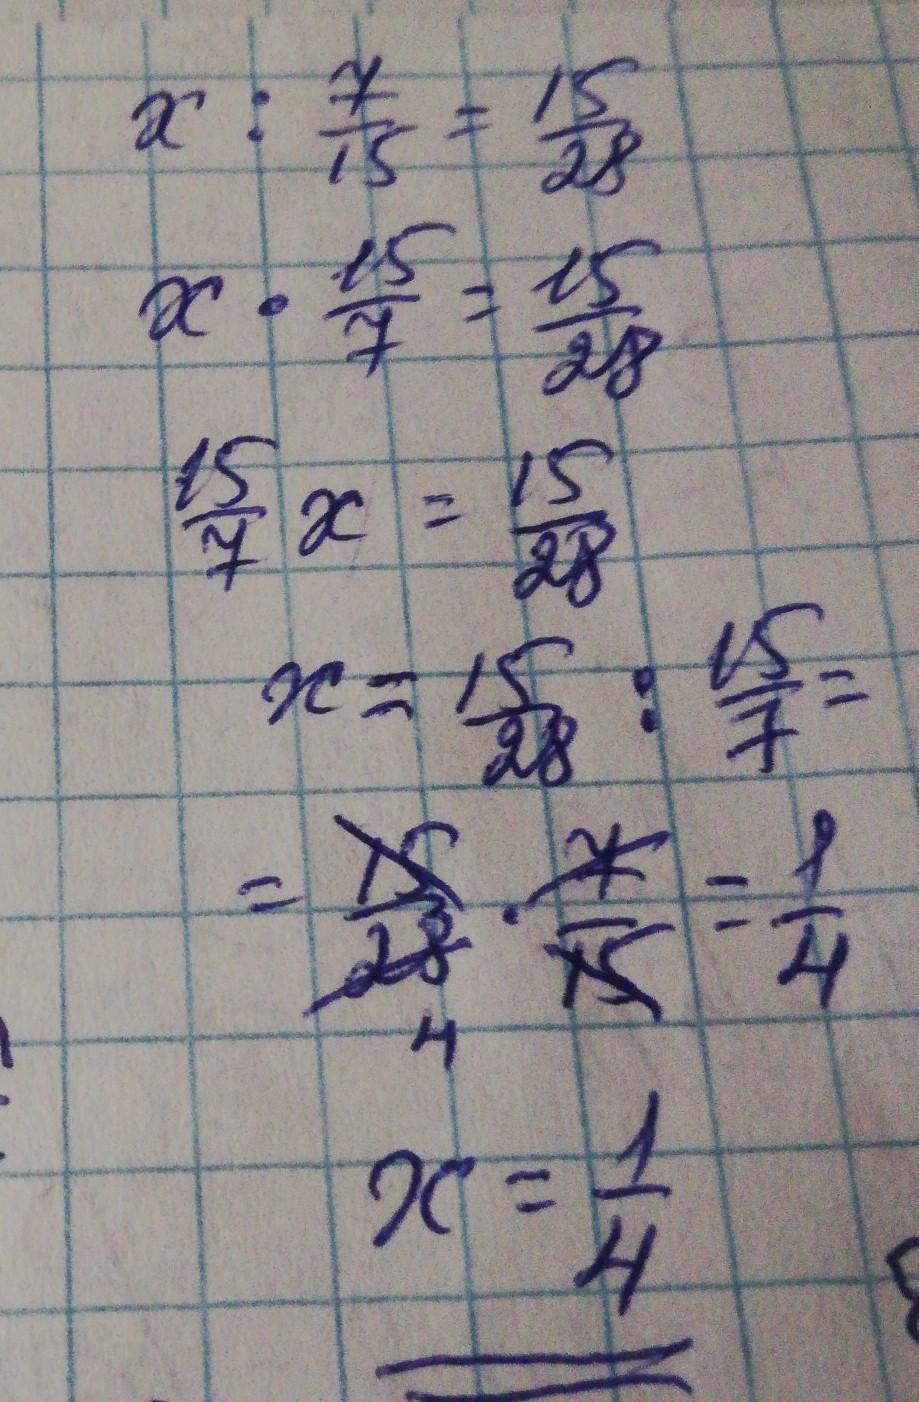 x : 7/15 = 15/28
x · 15/7 = 15/28
15/7 x = 15/28
x = 15/28 : 15/7 =
= 15/28 · 7/15 = 1/4
4
x = 1/4